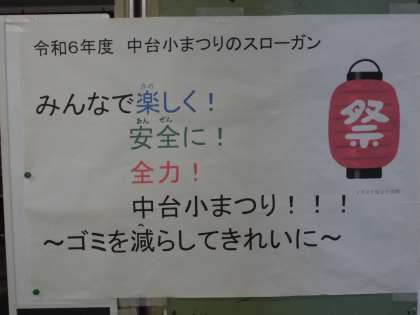 令和６年度　中台小まつりのスローガン
みんなで楽しく！
安全に！
全力！
中台小まつり！！！
～ゴミを減らしてきれいに～
祭